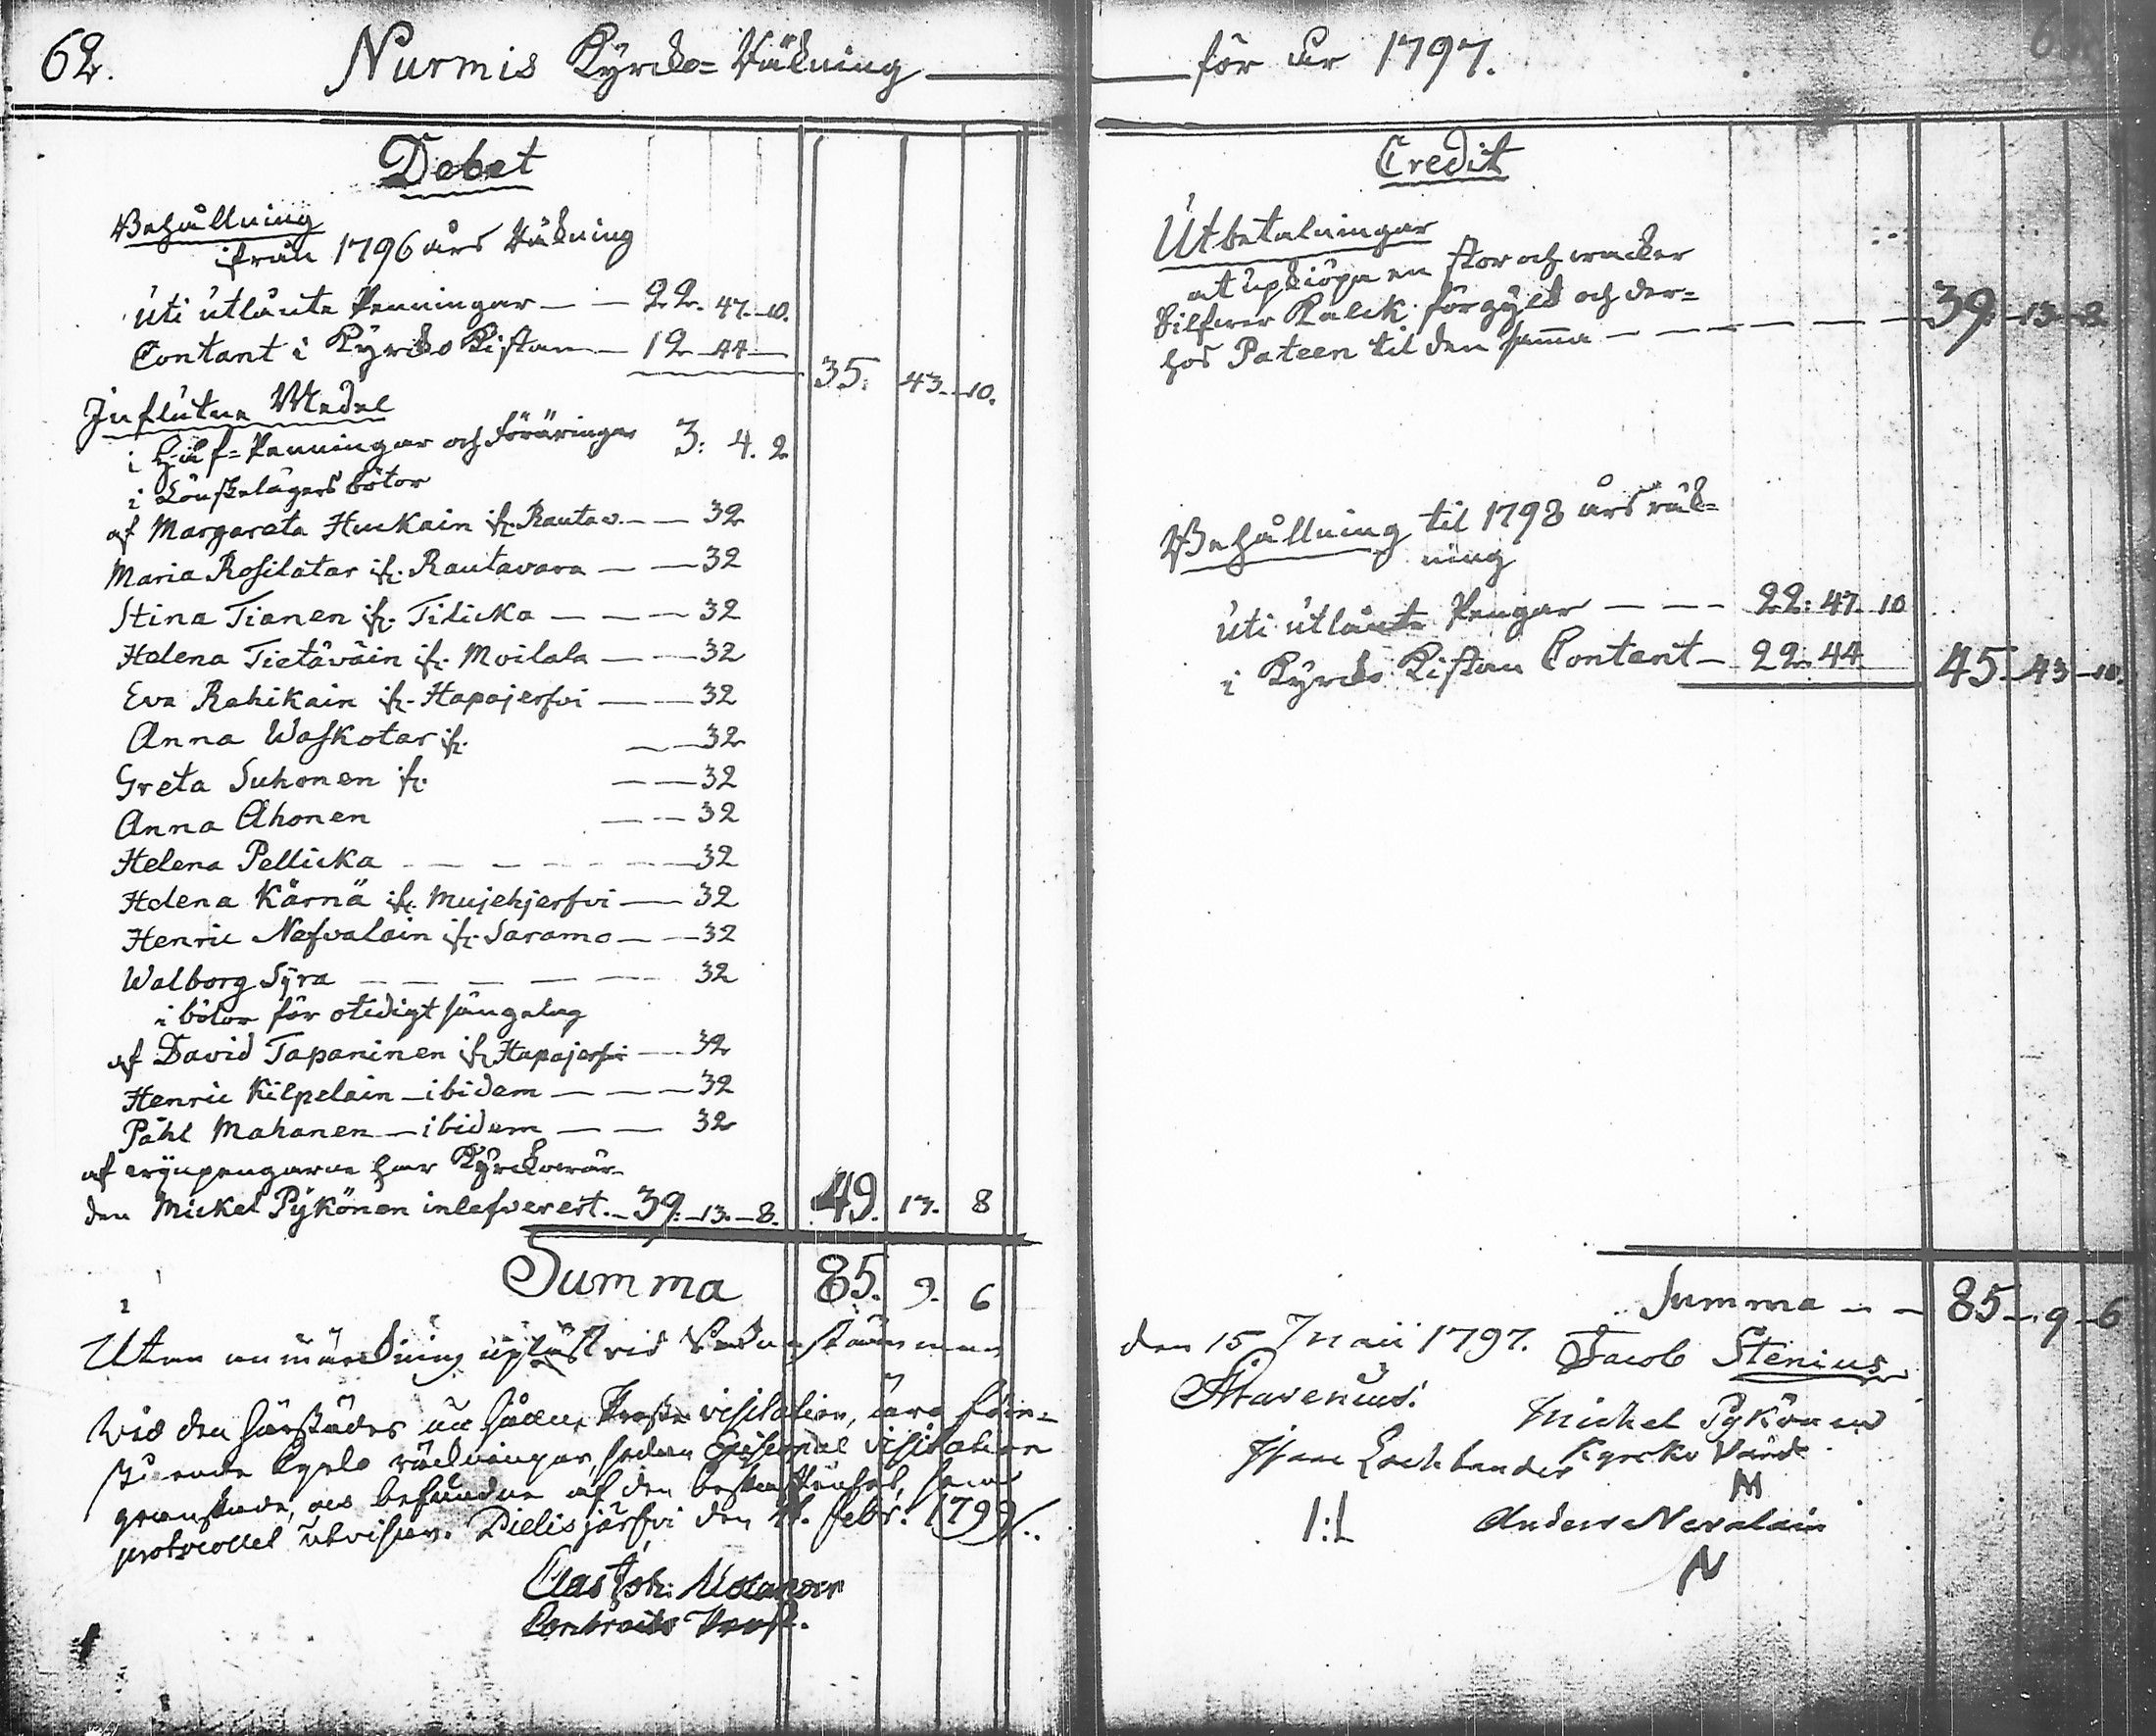 62.
Nurmis Kyrcko-Räkning för år 1797.
Debet
Behållning
ifrån 1796 års Räkning
uti utlånte Penningar — — 22. 47. 10.
Contant i Kyrcko Kistan — 12 — 44 —
35. 43. 10.
Influtne Medel
i Håf-Penningar och Föräringar 3: 4. 2
i Lönskelägers böter
af Margareta Huckain ifr. Rautav. — — 32
Maria Rosilatar ifr. Rautavara — — 32
Stina Tianen ifr. Tilicka — — — 32
Helena Tietäväin ifr. Moilala — — 32
Eva Rahikain ifr. Hapajerfvi — — 32
Anna Waskotar ifr. — — 32
Greta Suhonen ifr. — — 32
Anna Ahonen — — 32
Helena Pellicka — — — — — 32
Helena Kärnä ifr. Mujehjerfvi — — 32
Henric Nefvalain ifr. Saramo — — 32
Walborg Syra — — — — — 32
i böter för otidigt sängelag
af David Tapaninen ifr. Hapajerfvi — 32
Henric Kilpelain — ibidem — — — 32
Påhl Mahanen — ibidem — — 32
af pengarne har Kyrckovär-
den Mickel Pykönen inlefverert. — 39. — 13. — 8. 49. 13. 8
Summa 85. 9. 6
Utan anmärckning upläst vid Sockne stämman
Vid den härstädes nu hållne Prosts visitation, äro före-
stående Capels räckningar, sedan Episcopal visitation
granskade, och befundne af den beskaffenhet, som
protocollet utvisar. Pielisjärfvi den Febr. 1799.
Contracts Prost.
Credit
Utbetalningar
at upkiöpa en stor och wacker
Silfwer Kalck förgyld och der-
hos Pateen til den samma — — — — — — 39. 13. 8.
Behållning til 1798 års räk-
ning
uti utlånte Pengar — — — 22. 47. 10
i Kyrcko Kistan Contant — 22. 44
45. 43. 10.
Summa — — 85. 9. 6
den 15 Maii 1797. Jacob Stenius
Michel Pykönen
Kyrcko Värd
M
Anders Nevalain
N